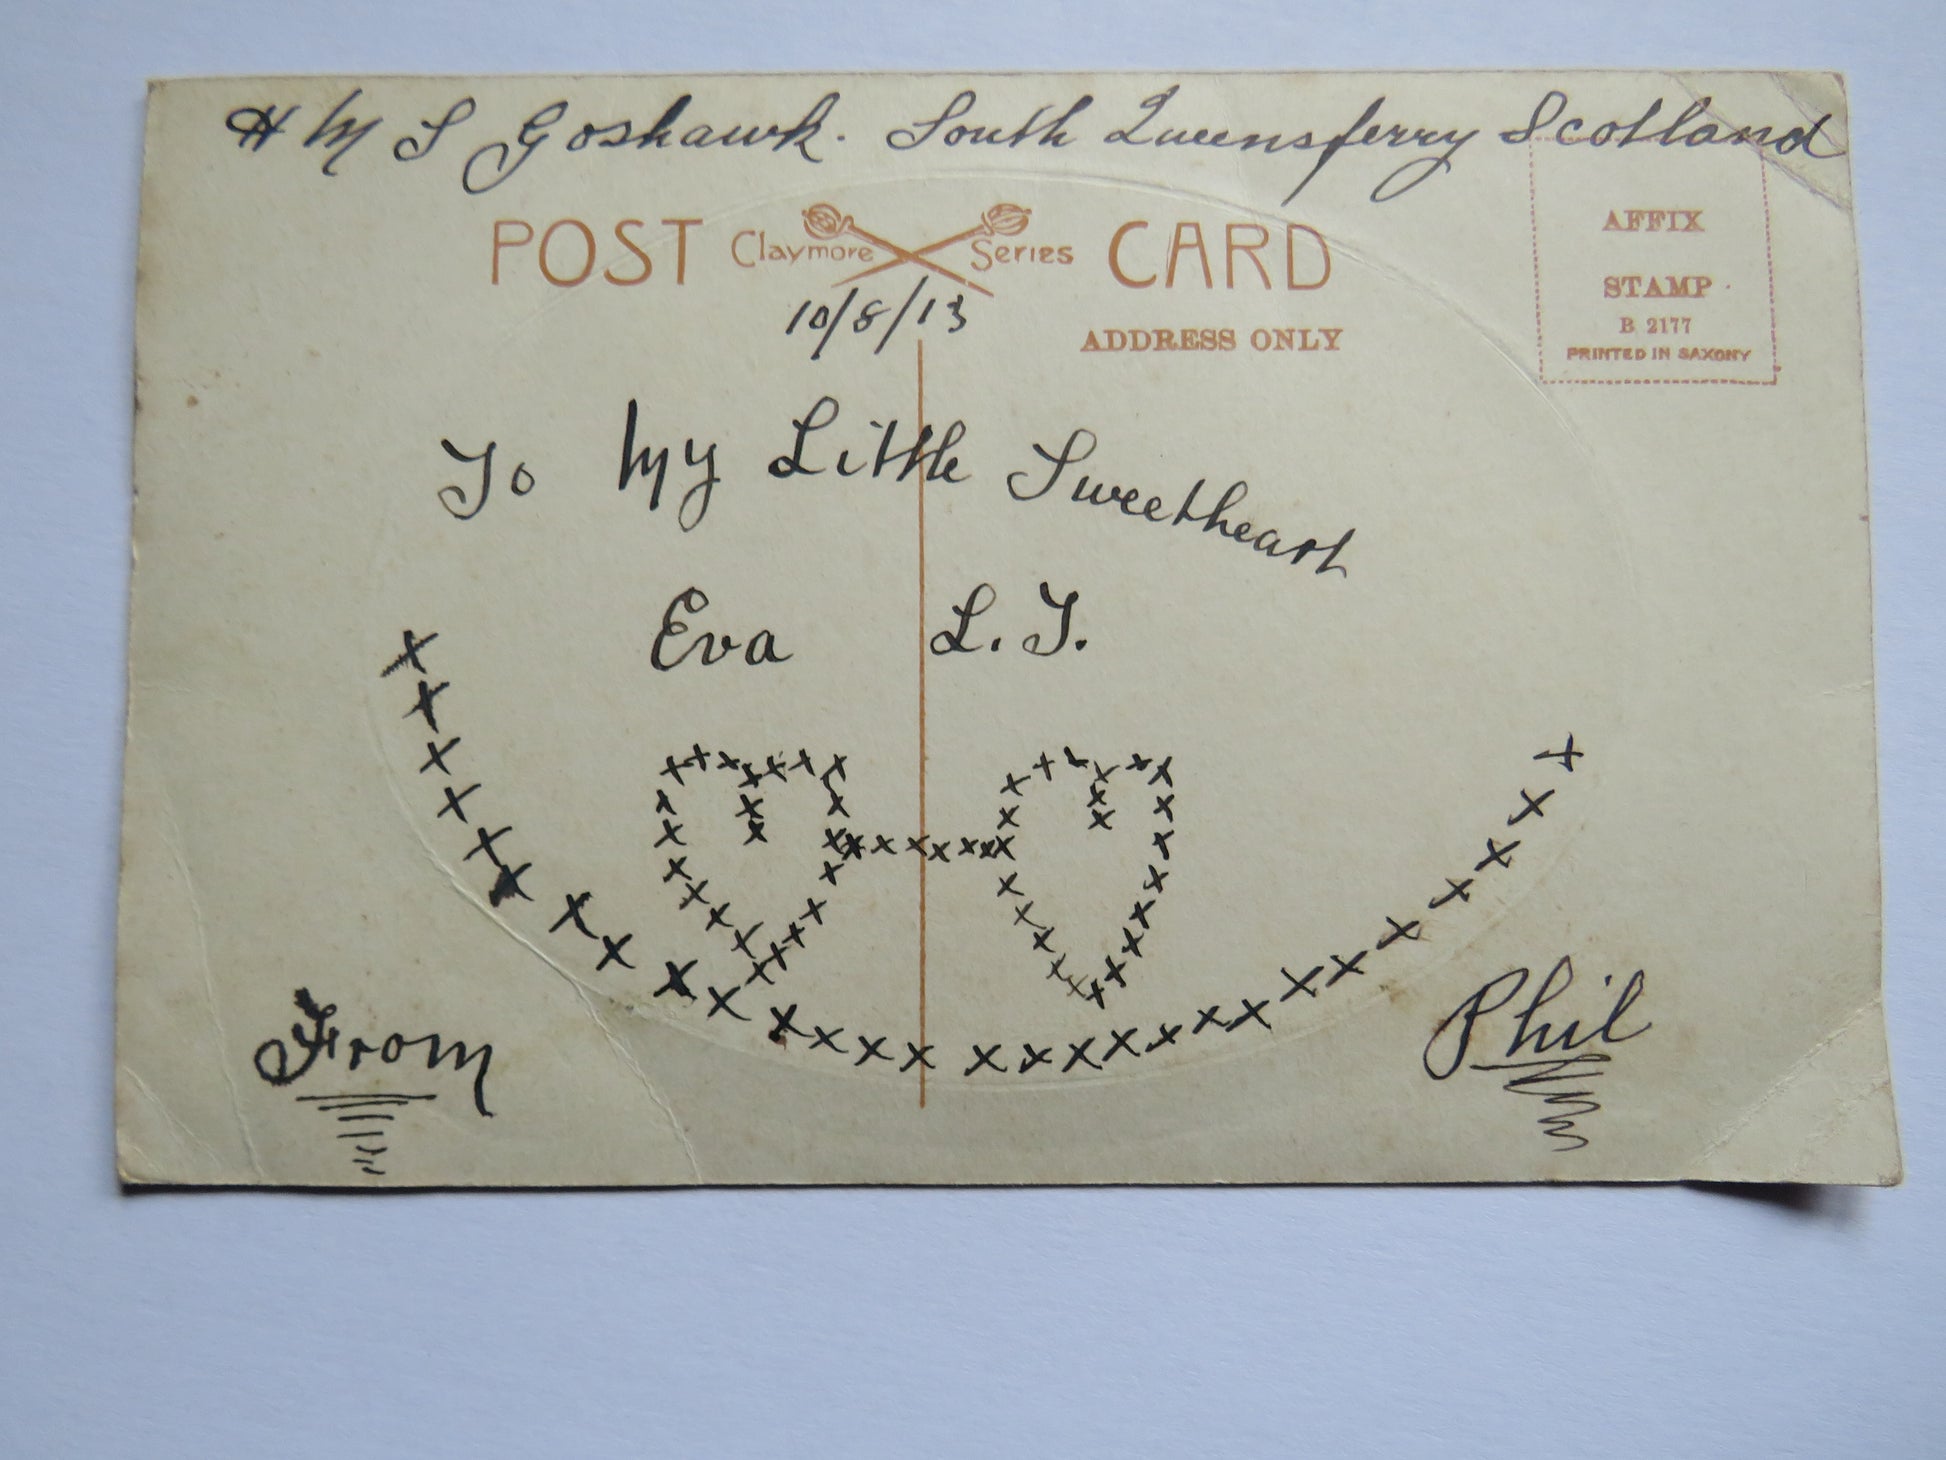 H M S Goshawk. South Queensferry Scotland
POST Claymore Series CARD
10/8/13
ADDRESS ONLY
AFFIX
STAMP
B 2177
PRINTED IN SAXONY
To My Little Sweetheart
Eva L. T.
From
Phil